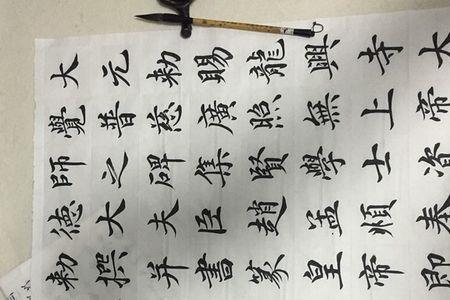 大元勅賜龍興寺大
覺普慈廣照無上帝
師之碑集賢學士資
德大夫臣趙孟頫奉
勑撰并書篆皇帝即